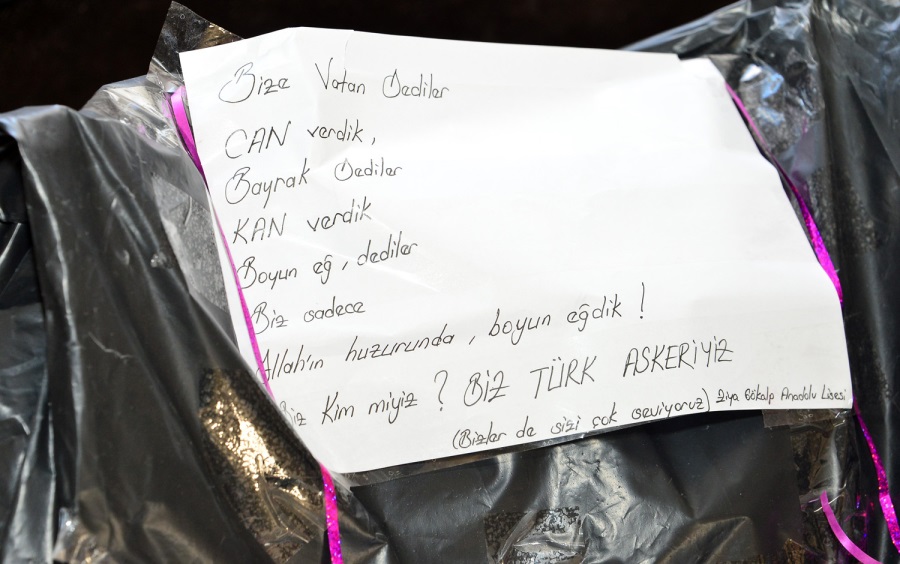 Bize Vatan Dediler
CAN verdik,
Bayrak Dediler
KAN verdik
Boyun eğ, dediler
Biz sadece
Allah'ın huzurunda, boyun eğdik!
Biz Kim miyiz? BİZ TÜRK ASKERİYİZ
(Bizler de sizi çok seviyoruz) Ziya Gökalp Anadolu Lisesi